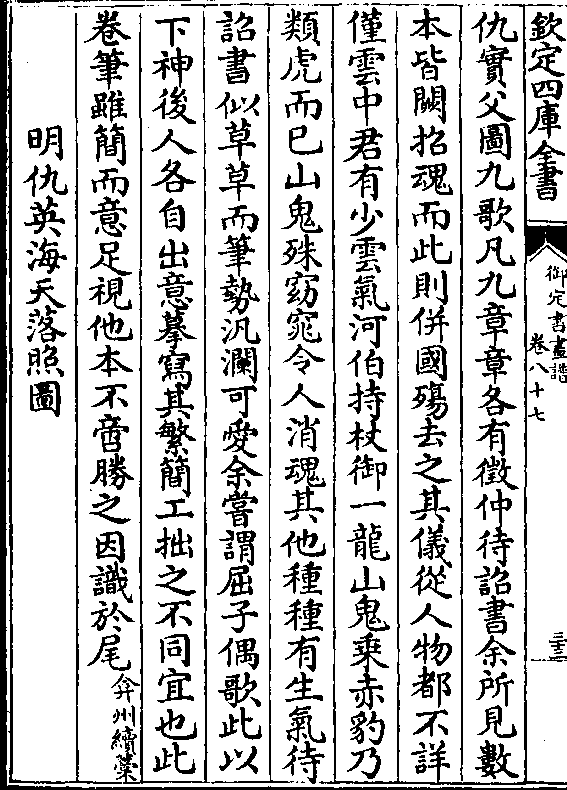 欽定四庫全書
御定書畫譜
卷八十七
三十三
仇實父圖九歌凡九章章各有徵仲待詔書余所見數
本皆闕招魂而此則併國殤去之其儀從人物都不詳
僅雲中君有少雲氣河伯持杖御一龍山鬼乗赤豹乃
類虎而已山鬼殊窈窕令人消魂其他種種有生氣待
詔書似草草而筆勢汎瀾可愛余嘗謂屈子偶歌此以
下神後人各自出意摹寫其繁簡工拙之不同宜也此
卷筆雖簡而意足視他本不啻勝之因識於尾弇州續藁
明仇英海天落照圖